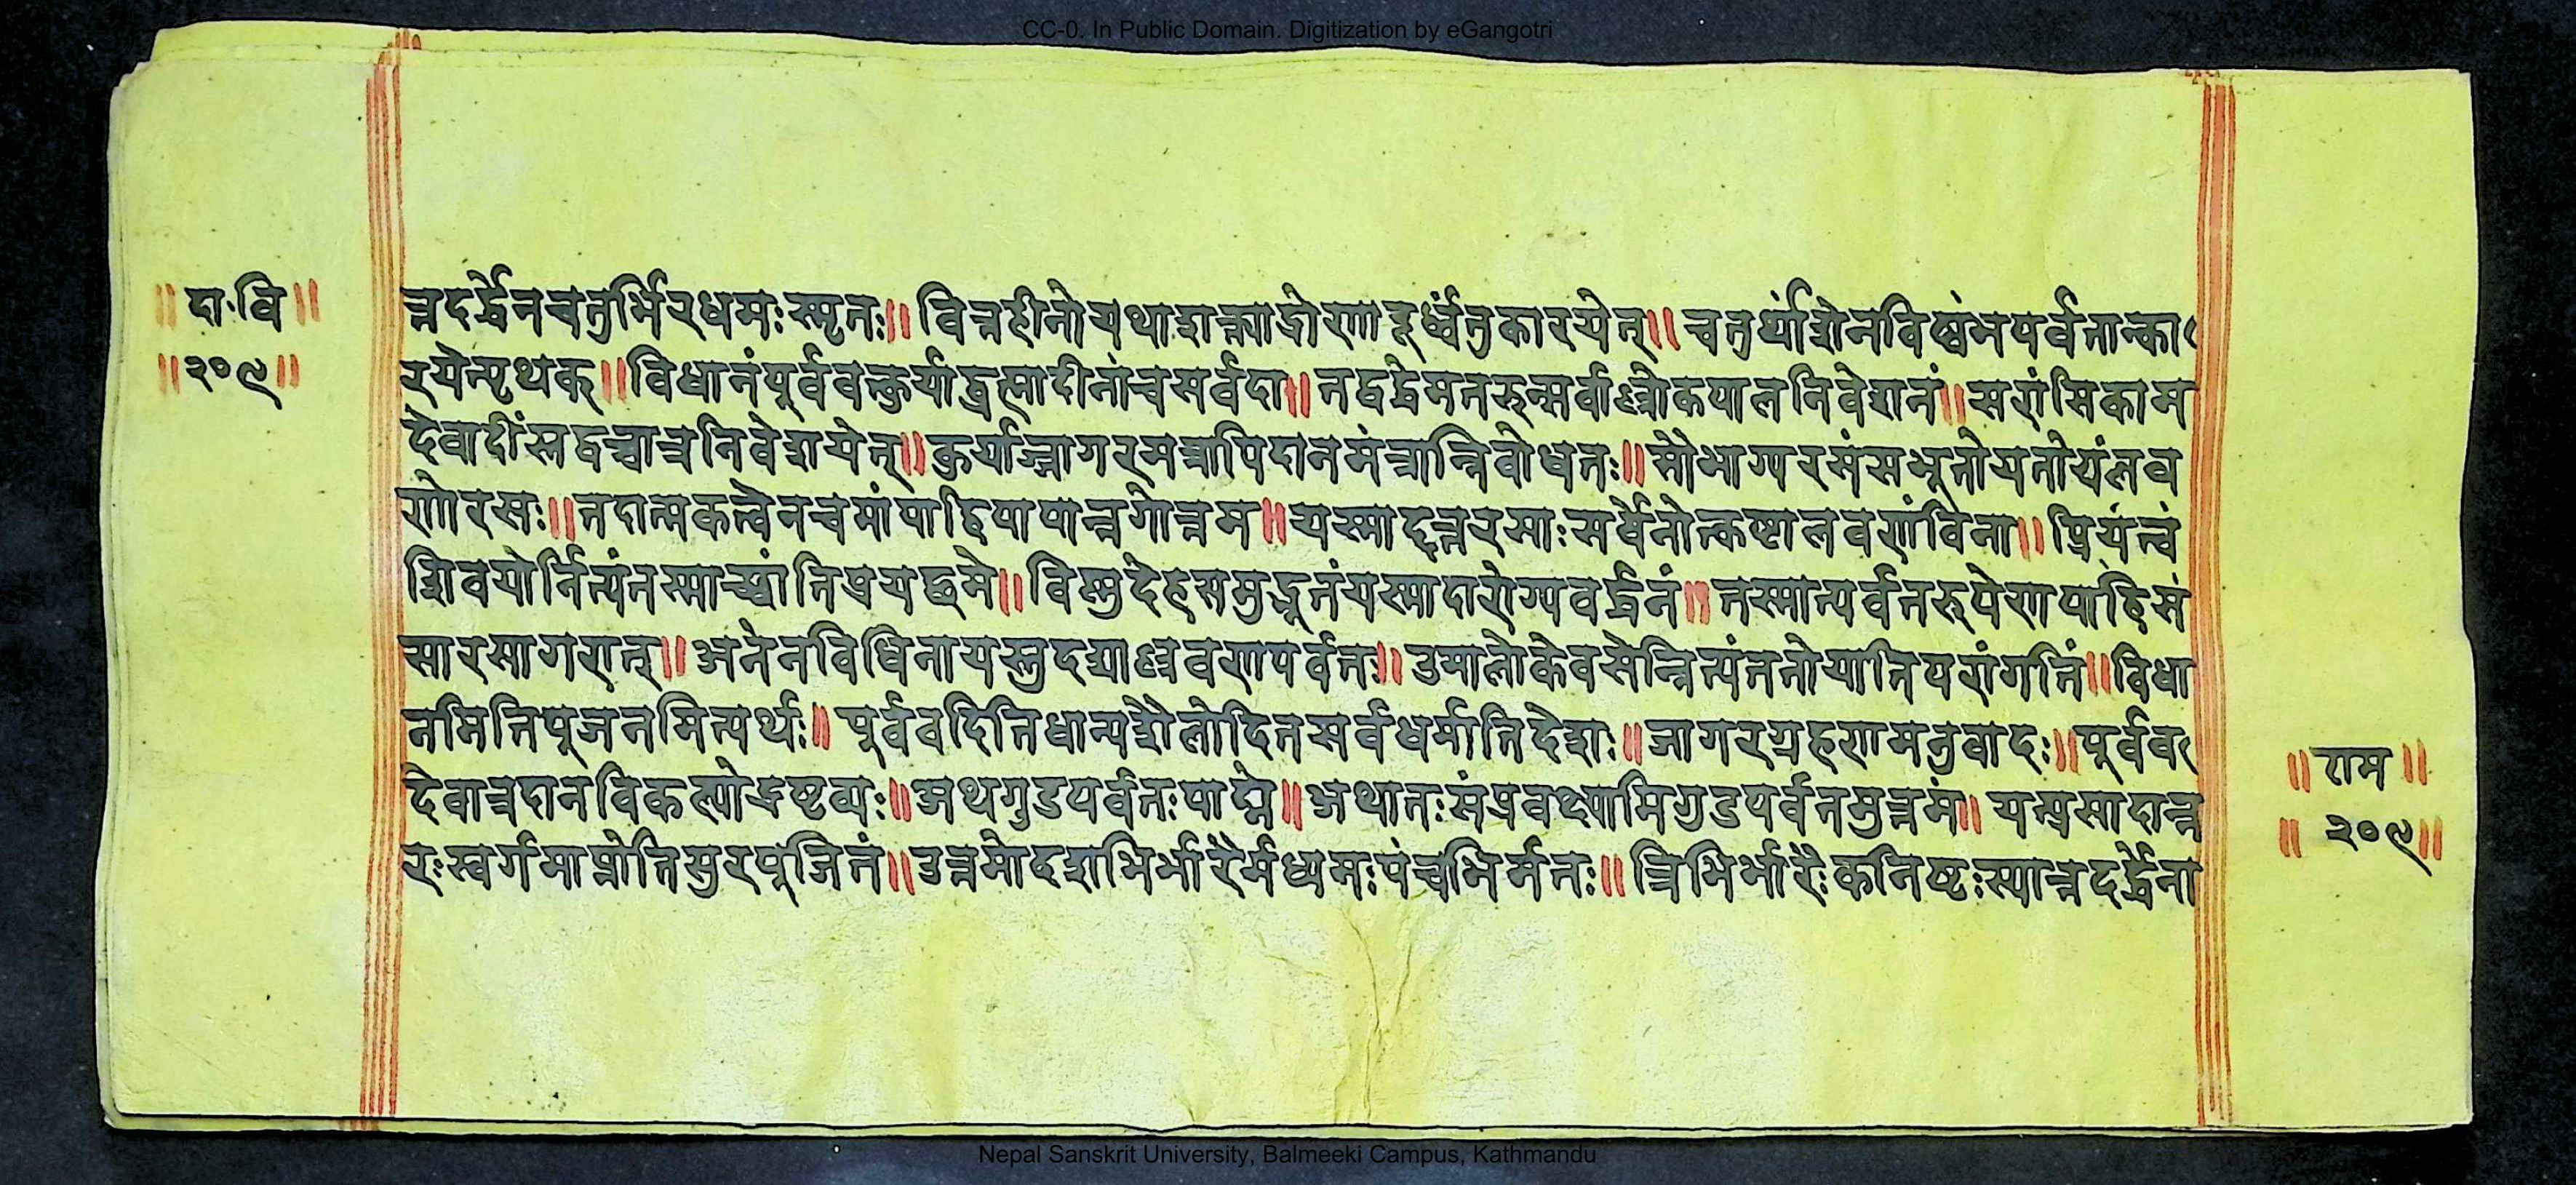 CC-0. In Public Domain. Digitization by eGangotri
॥ दा॰वि॥
॥२०९॥
त्तदर्द्धेनचतुर्भिरधमःस्मृतः॥ वित्तहीनोयथाशक्त्याद्रोणादूर्ध्वंतुकारयेत्॥ चतुर्थांशेनविष्कंभपर्वतान्का
रयेत्पृथक्॥विधानंपूर्ववत्कुर्याद्ब्रह्मादीनांचसर्वदा॥ तद्वद्धेमतरुन्सर्वाल्लोकपालनिवेशनं॥सरांसिकाम
देवादींस्तद्वच्चात्रनिवेशयेत्॥कुर्याज्जागरमत्रापिदानमंत्रान्निबोधतः॥सौभाग्यरससंभूतोयतोयंलव
णोरसः॥तदात्मकत्वेनचमांपाहिपापान्नगोत्तम॥यस्मादन्नरसाःसर्वेनोत्कष्टालवणंविना॥प्रियंत्वं
शिवयोर्नित्यंतस्माच्छांतिप्रयछमे॥विष्णुदेहसमुद्भूतंयस्मादारोग्यवर्द्धनं॥ तस्मात्पर्वतरुपेणपाहिसं
सारसागरात्॥अनेनविधिनायस्तुदद्याल्लवणपर्वतः॥उमालोकेवसेन्नित्यंततोयातिपरांगतिं॥विधा
नमितिपूजनमित्यर्थः॥ पूर्ववदितिधान्यशैलोदितसर्वधर्मातिदेशः॥जागरग्रहणमनुवादः॥पूर्वव
देवात्रदानविकल्पोद्रष्टव्यः॥अथगुडपर्वतःपाद्मे॥अथातःसंप्रवक्ष्यामिगुडपर्वतमुत्तमं॥ यत्प्रसादान्न
रःस्वर्गमाप्नोतिसुरपूजितं॥उत्तमोदशभिर्भारैर्मध्यमःपंचभिर्मतः॥ त्रिभिर्भारैःकनिष्टःस्यात्तदर्द्धेना
॥राम॥
॥ २०९॥
Nepal Sanskrit University, Balmeeki Campus, Kathmandu